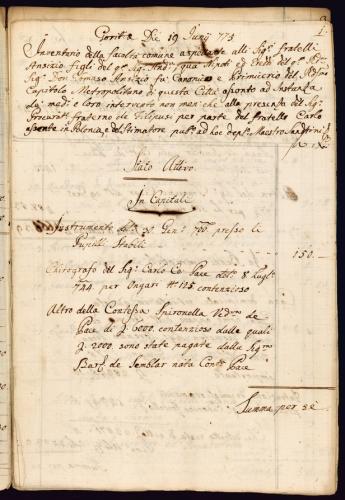 1.
Gorit.a Di 19 Iunij 773
Inventario della facoltà comune aspettante alli Sig.i fratelli
Ansizio figli del q.m Sig.r And.a qua Nipoti ed Eredi del q.m
Sig.r Don Tomaso Ansizio fù Canonico e Primicerio del
Capitolo Metropolitano di questa Città assonto ad Instanza
de medi e loro intervento non men che alla presenza del Sig.r
Procurat.e fraterno de Filipusi per parte del fratello Carlo
assente in Polonia, e del Stimatore pub.o ad hoc dep.o Maestro
Stato Attivo
In Capitali
Instrumento di d. 31 Gen.o 700 presso li
Pupilli Stabili 150.—
Chirografo del Sig.r Carlo Co: Pace dtt.o 8 Lugl.o
744. per Ongari N.o 125 contenzioso
Altro della Contessa Spironella Ved.va de
Pace di 6000. contenzioso dalle quali
2000. sono state pagate dalla Sig.ra
Bar.sa de Semblar nata Cont.a Pace
Summa per se